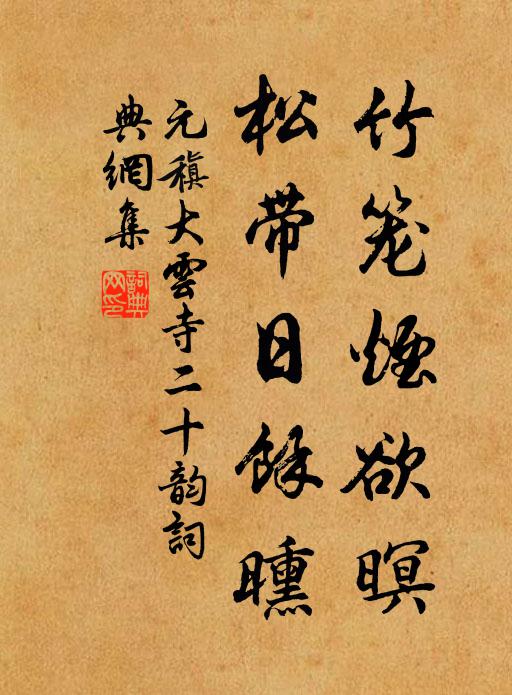 竹笼煙欲暝
松带日餘曛
元稹大雲寺二十韵詞
典網集
詞典网印